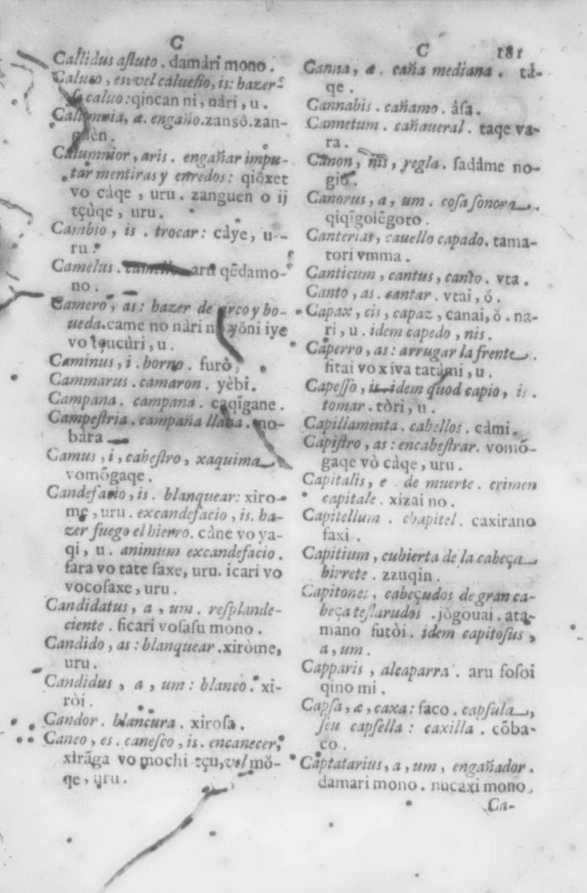 C
Callidus astuto . damàri mono .
Caluo, es vel caluesio, is: hazer
se caluo: qincan ni, nàri, u .
Calumnia, æ. engaño. zansò. zan-
guèn .
Calumnior, aris . engañar impu-
tar mentiras y enredos : qiòxet
vo càqe , uru . zanguen o ij
tçùqe , uru .
Cambio , is . trocar : càye, u-
ru .
Camelus . camello aru qēdamo-
no .
Camero , as : hazer de arco y bo-
ueda. came no nàri ni yōni iye
vo tçucùri, u .
Caminus , i . horno . furò ,
Cammarus . camaron . yèbi .
Campana . campana . caqīgane .
Campestria . campaña llana . no-
bàra
Camus , i , cabestro , xaquima
vomōgaqe .
Candefacio , is . blanquear: xiro-
me , uru . excandefacio , is . ha-
zer fuego el hierro . càne vo ya-
qi , u . animum excandefacio .
fara vo tate saxe, uru. icari vo
vocosaxe , uru .
Candidatus , a , um . resplande-
ciente . ficari vosasu mono .
Candido , as : blanquear . xiròme,
uru .
Candidus , a , um : blanco . xi-
ròi .
Candor . blancura . xirosa .
Caneo , es . canesco , is . encanecer,
xirāga vo mochi tçu, vel mō-
qe , uru .
C 181
Canna, æ . caña mediana . tà-
qe .
Cannabis . cañamo . àsa .
Cannetum . cañaueral . taqe va-
ra .
Canon , nis , regla . sadàme no-
giō .
Canorus , a , um . cosa sonora
qiqīgoiēgoto .
Canterius , cauello capado . tama-
tori vmma .
Canticum , cantus , canto . vta .
Canto , as . cantar . vtai , ō .
Capax , cis , capaz , canai, ō . na-
ri , u . idem capedo , nis .
Caperro , as : arrugar la frente .
fitai vo xiva tatàmi , u .
Capesso , is idem quod capio , is .
tomar . tòri , u .
Capiliamenta . cabellos . càmi .
Capistro , as : encabestrar. vomō-
gaqe vò càqe , uru .
Capitalis , e de muerte . crimen
capitale . xizai no .
Capitellum . chapitel . caxirano
faxi .
Capitium , cubierta de la cabeça
birrete . zzuqin .
Capitones , cabeçudos de gran ca-
beça testarudos . jògouai . ata-
mano futòi . idem capitosus ,
a , um .
Capparis , alcaparra . aru fosoi
qino mi .
Capsa, æ, caxa: faco . capsula ,
seu capsella : caxilla . cōba-
co .
Captatarius, a , um , engañador .
damari mono . nucaxi mono .
Ca-